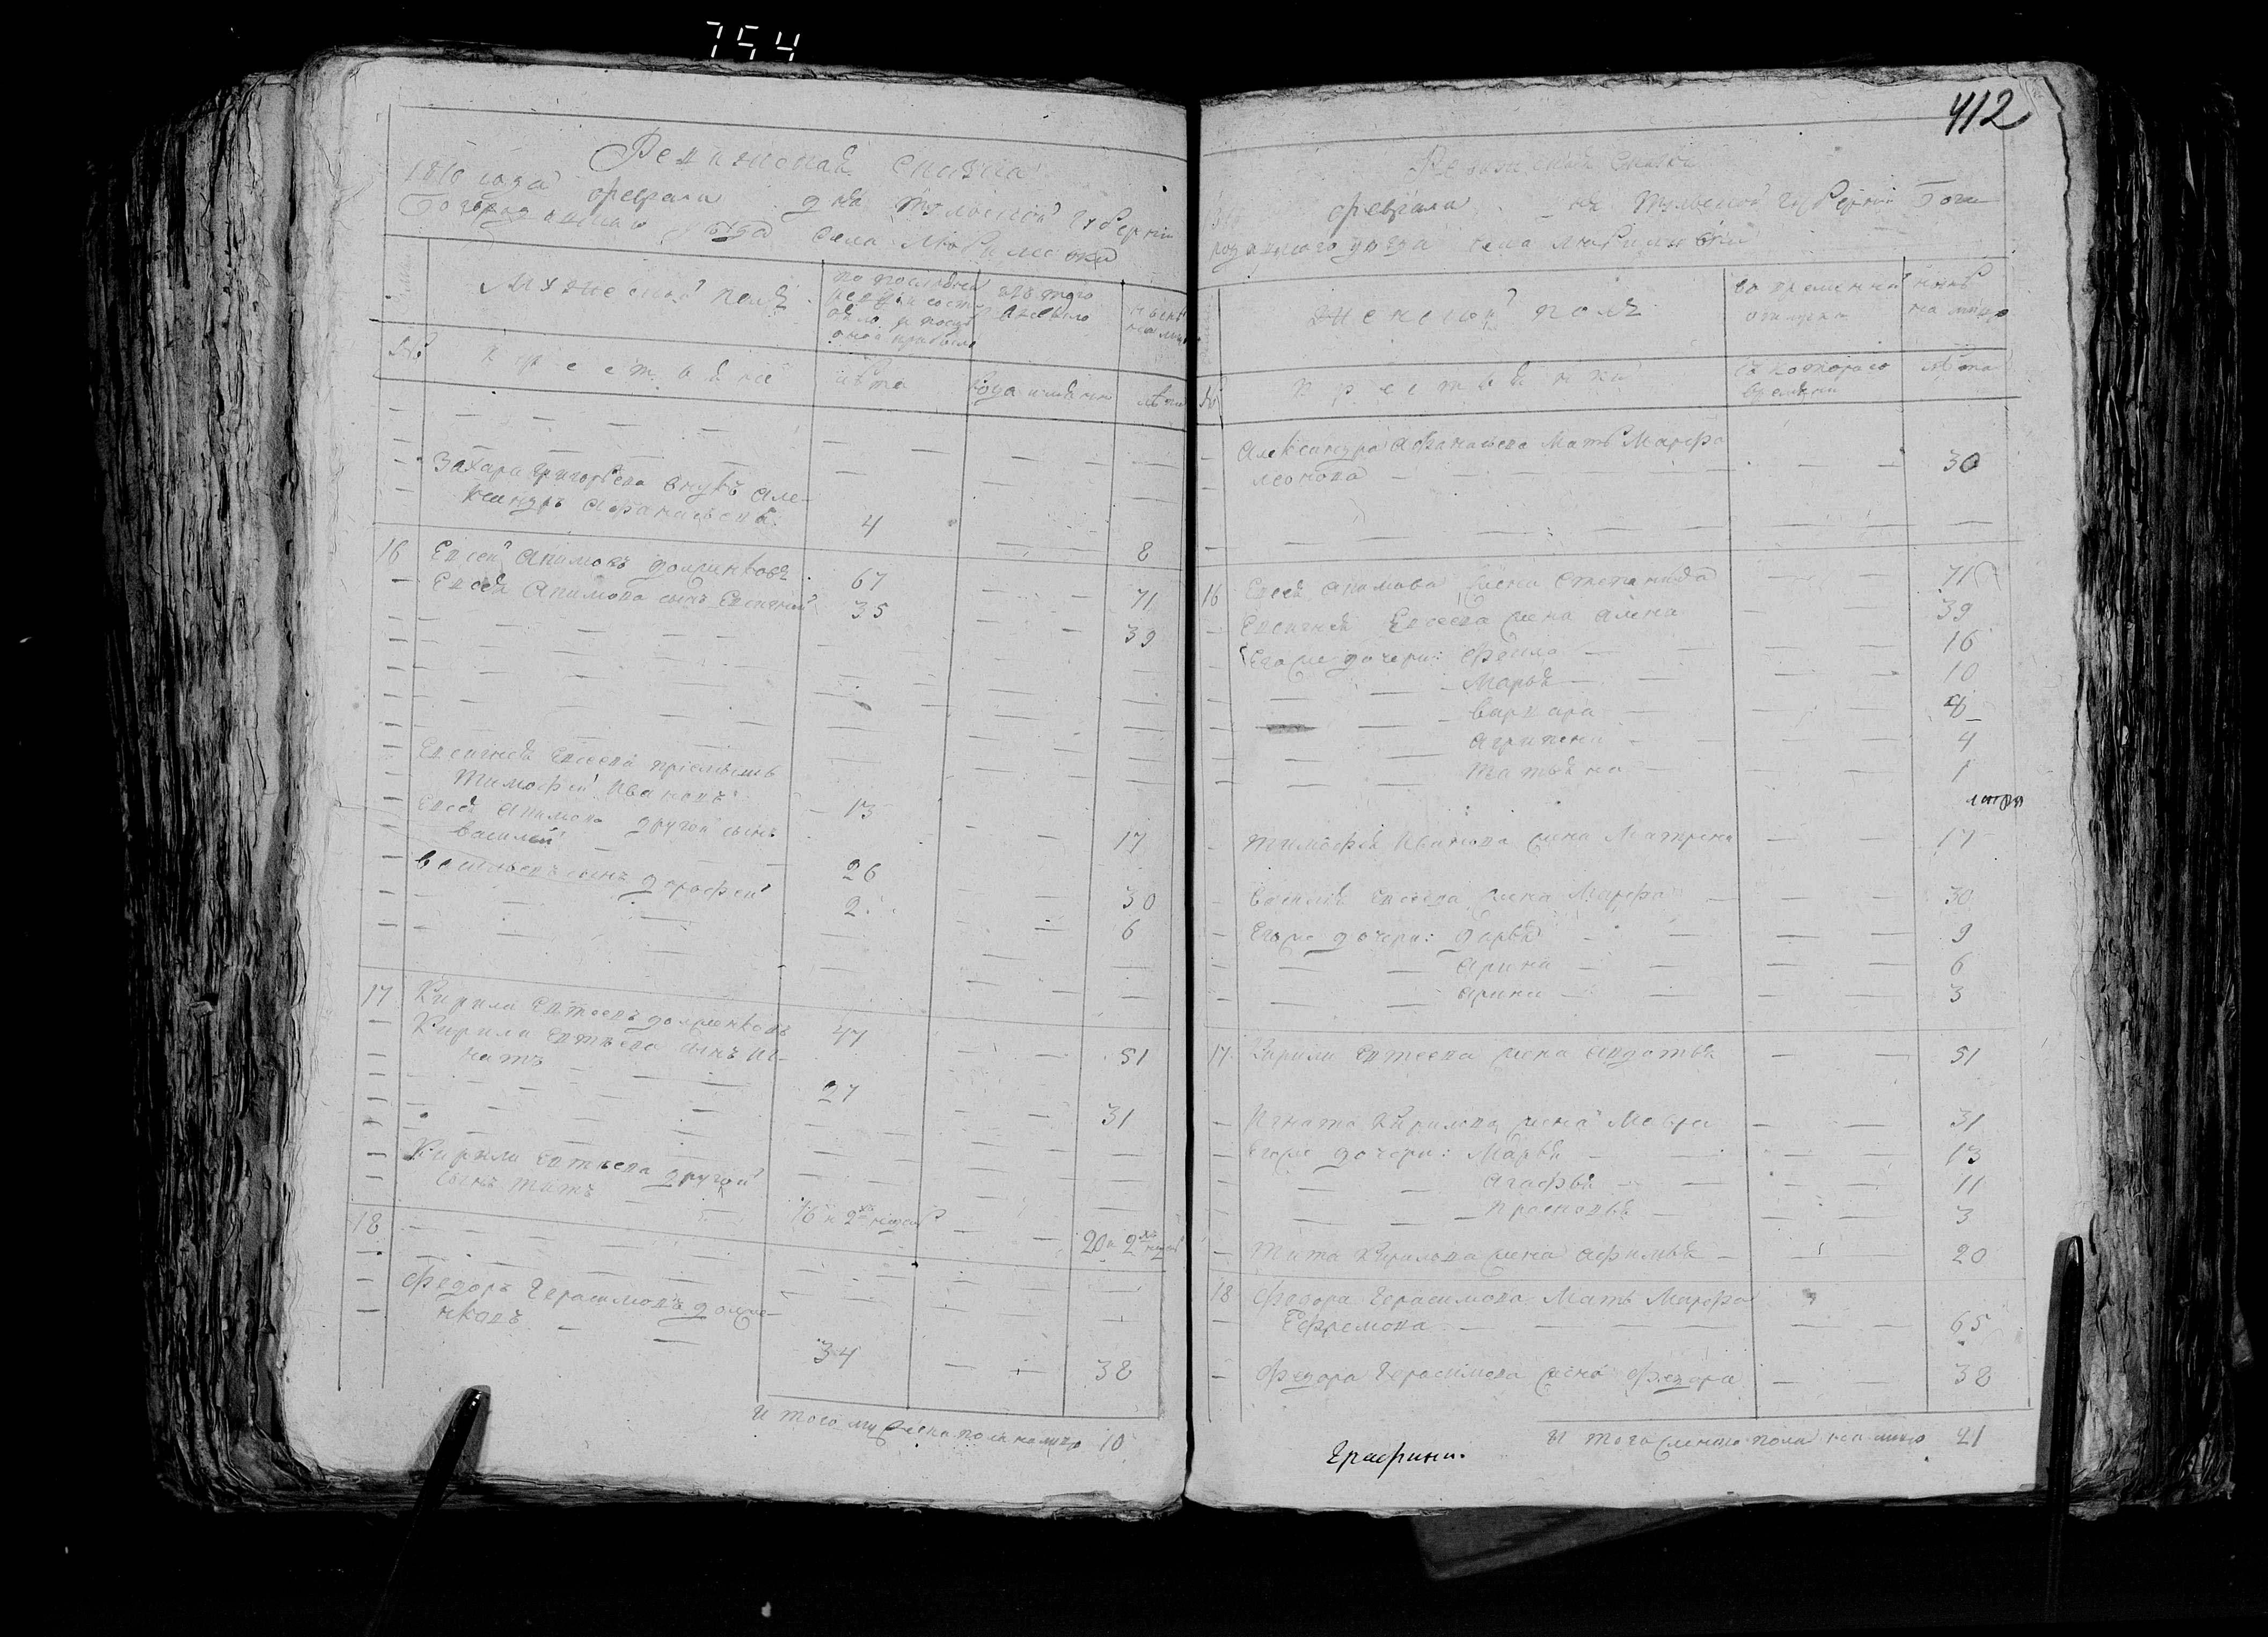 754
Ревижская скаска
1816 года февраля дня Тульской губернии
Богородицкаго уезда села Любимовки
Мужеской полъ
по последней
ревизіи состо
яло и после
оной прибыло
изъ того
выбыло
ныне
на лицо
№
крестьяне
лета
когда имянно
лета
Захара Григорьева внукъ Але-
ксандръ Афанасьевъ 4 8
16 Евсей Акимовъ долженковъ 67 71
Евсея Акимова сынъ Евсигней 35 39
Евсигнея Евсеева пріемышъ
Тимофей Ивановъ 13 17
Евсея Акимова другой сынъ
Василей 26 30
Васильевъ сынъ Дорофей 2 6
17 Кирила Евтеевъ долженковъ 47 51
Кирилы Евтеева сынъ Иг-
натъ 27 31
Кирилы Евтеева другой
сынъ Титъ 16 20
18
Федоръ Герасимовъ долже-
нковъ 34 38
Итого мужеска пола налицо 10
412
Ревижская скаска
февраля дня Тульской губернии Бого
родицкаго уезда села Любимовки
Женской полъ
во временной
отлучке
ныне
на лицо
№
крестьянки
съ котораго
времяни
лета
Александра Афанасьева мать Марфа
Леонова 30
16 Евсея Акимова жена Степанида 71
Евсигнея Евсеева жена Алена 39
Егоже дочери: Фекла 16
Марья 10
Варвара 8
Агрипена 4
Татьяна 1
Тимофея Иванова жена Матрена 17
Василья Евсеева жена Марфа 30
Егоже дочери: Дарья 9
Арина 6
Арина 3
17 Кирилы Евтеева жена Авдотья 51
Игната Кирилова жена Мавра 31
Егоже дочери: Марья 13
Агафья 11
Прасковья 3
Тита Кирилова жена Афимья 20
18 Федора Герасимова мать Марфа
Ефремова 65
Федора Герасимова жена Федора 38
Итого женска пола налицо 21
Графини.